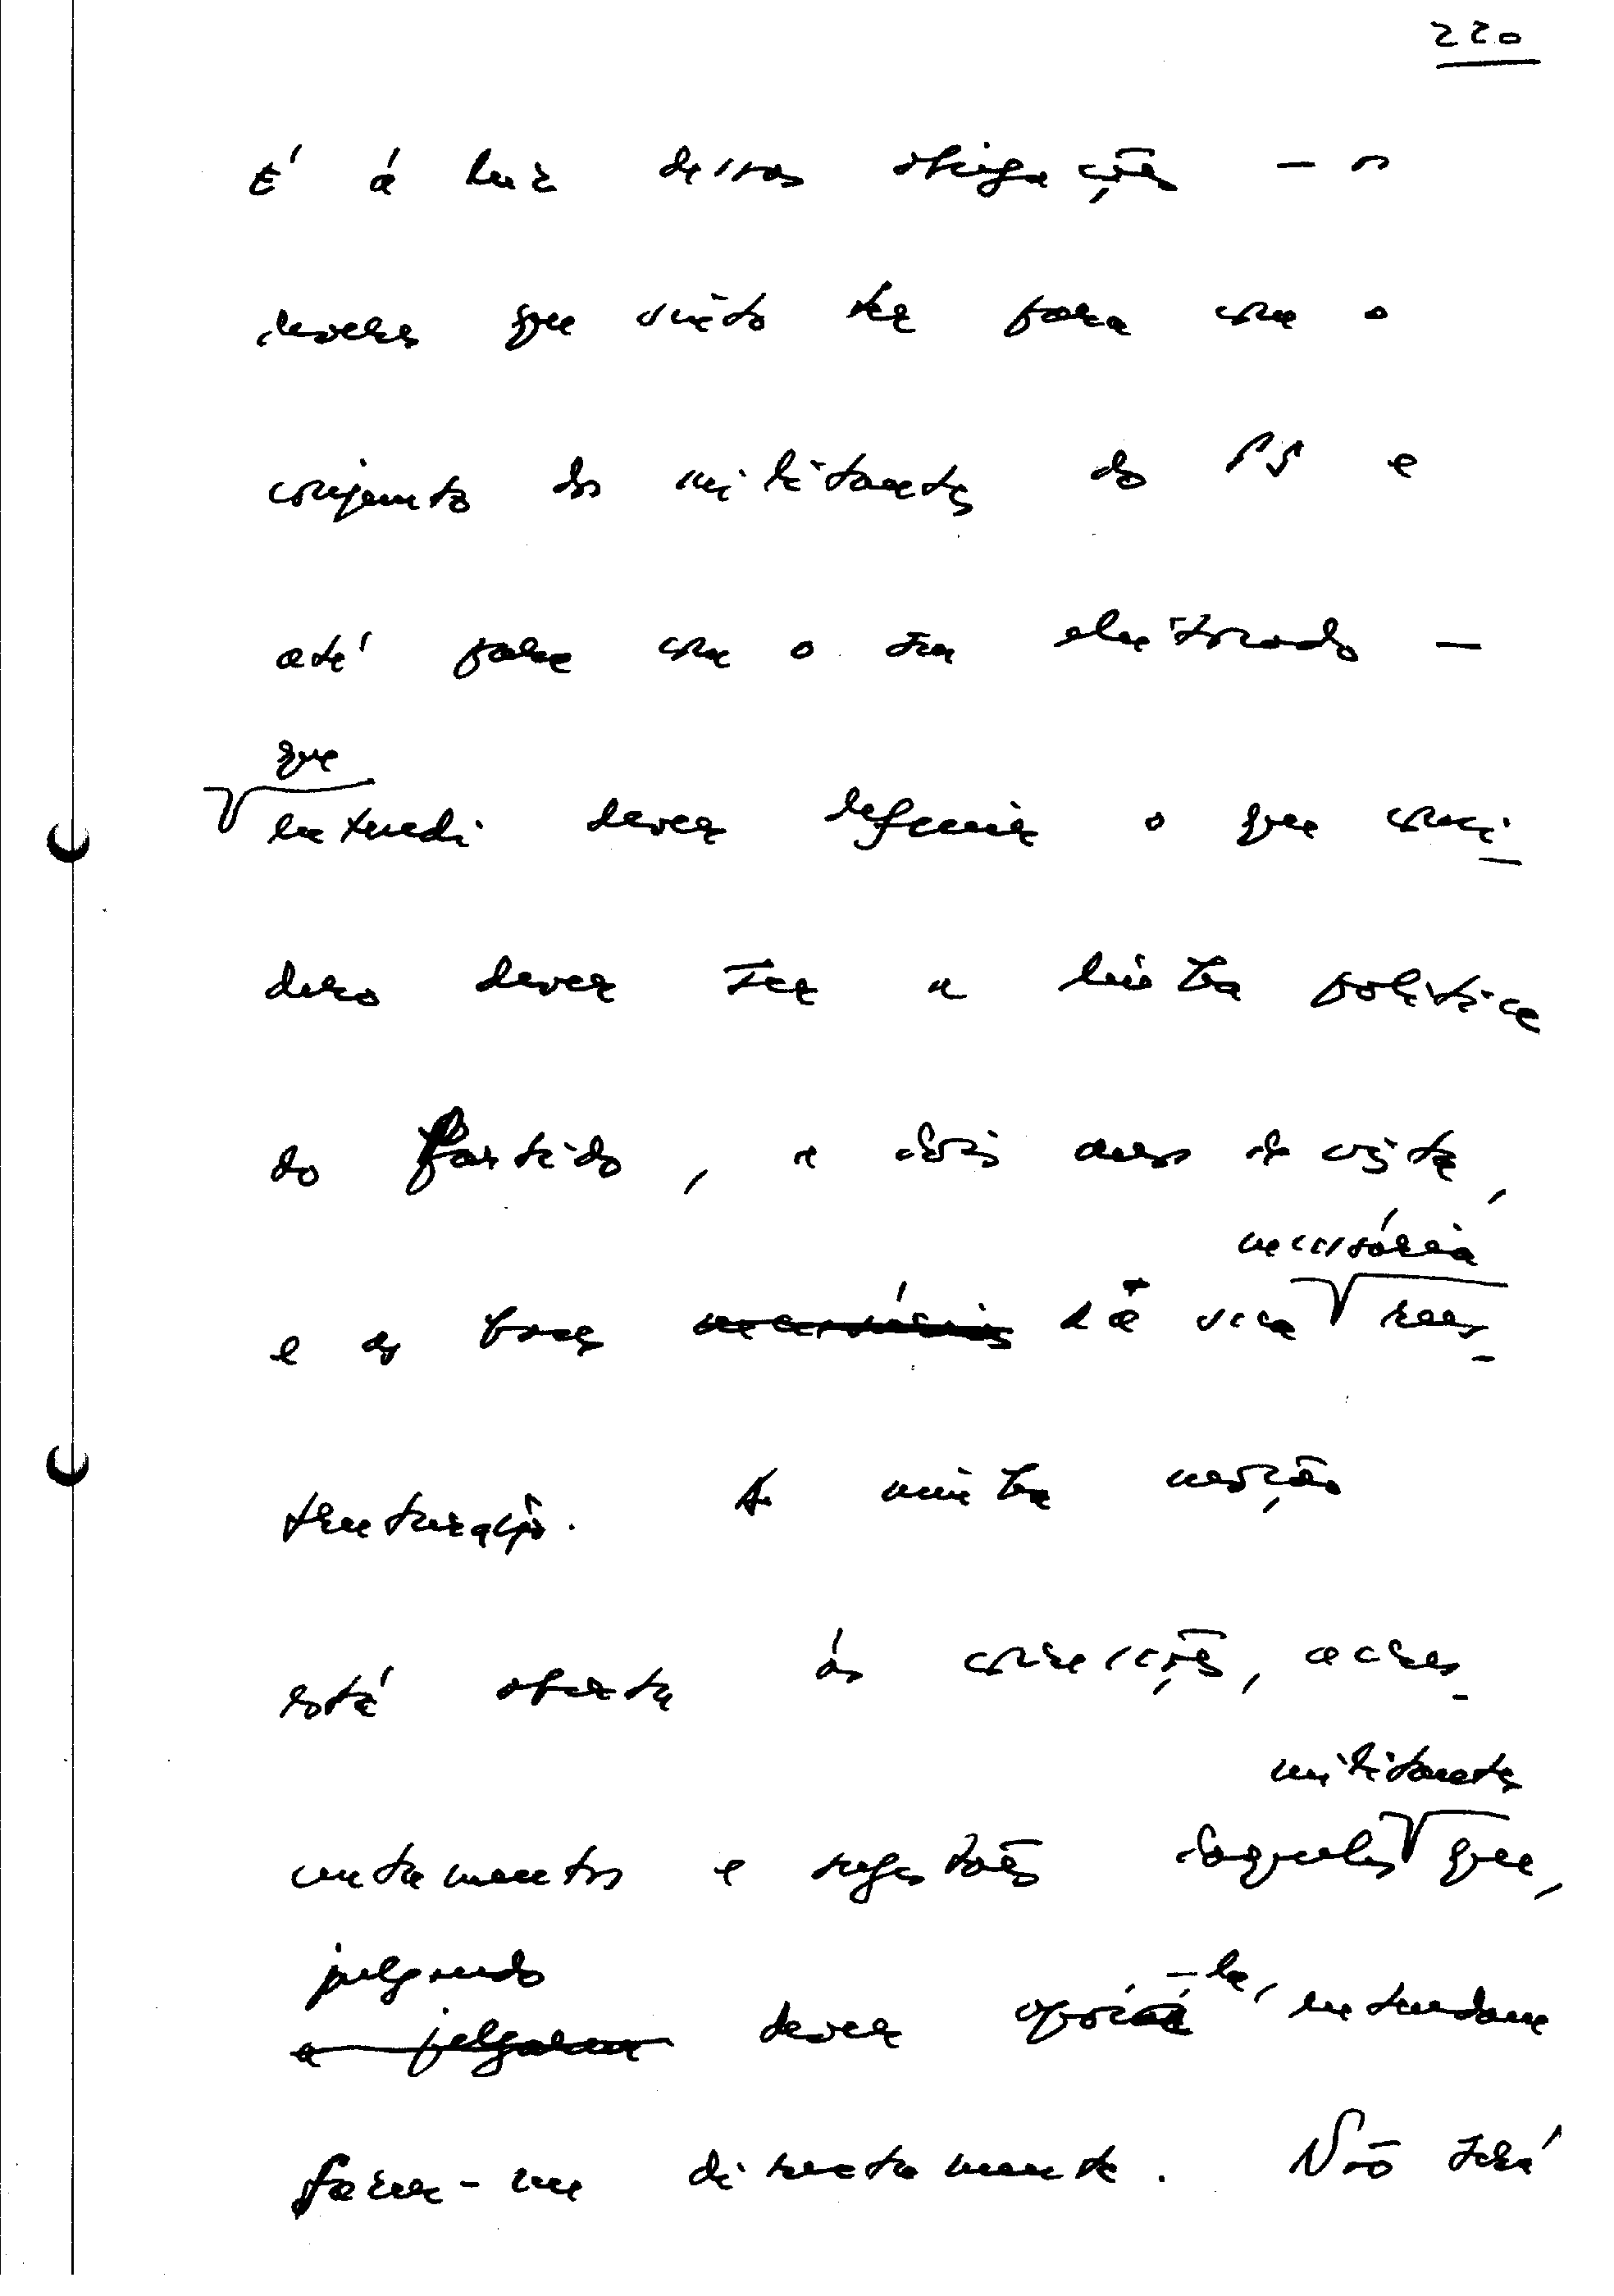 220
É á luz dessas obrigações – e
deveres que sinto ter para com o
conjunto dos militantes do PS e
até para com o seu eleitorado –
que
entendi dever definir o que consi-
dero dever ser a linha política
do Partido, a dois anos de vista,
necessária
e as bases necessárias à sua rees-
truturação. A minha moção
está aberta ás correcções, acres-
militantes
centamentos e sugestões daqueles que,
julgando
a julgarem dever apoiá-la, entendam
fazer-me directamente. Não será